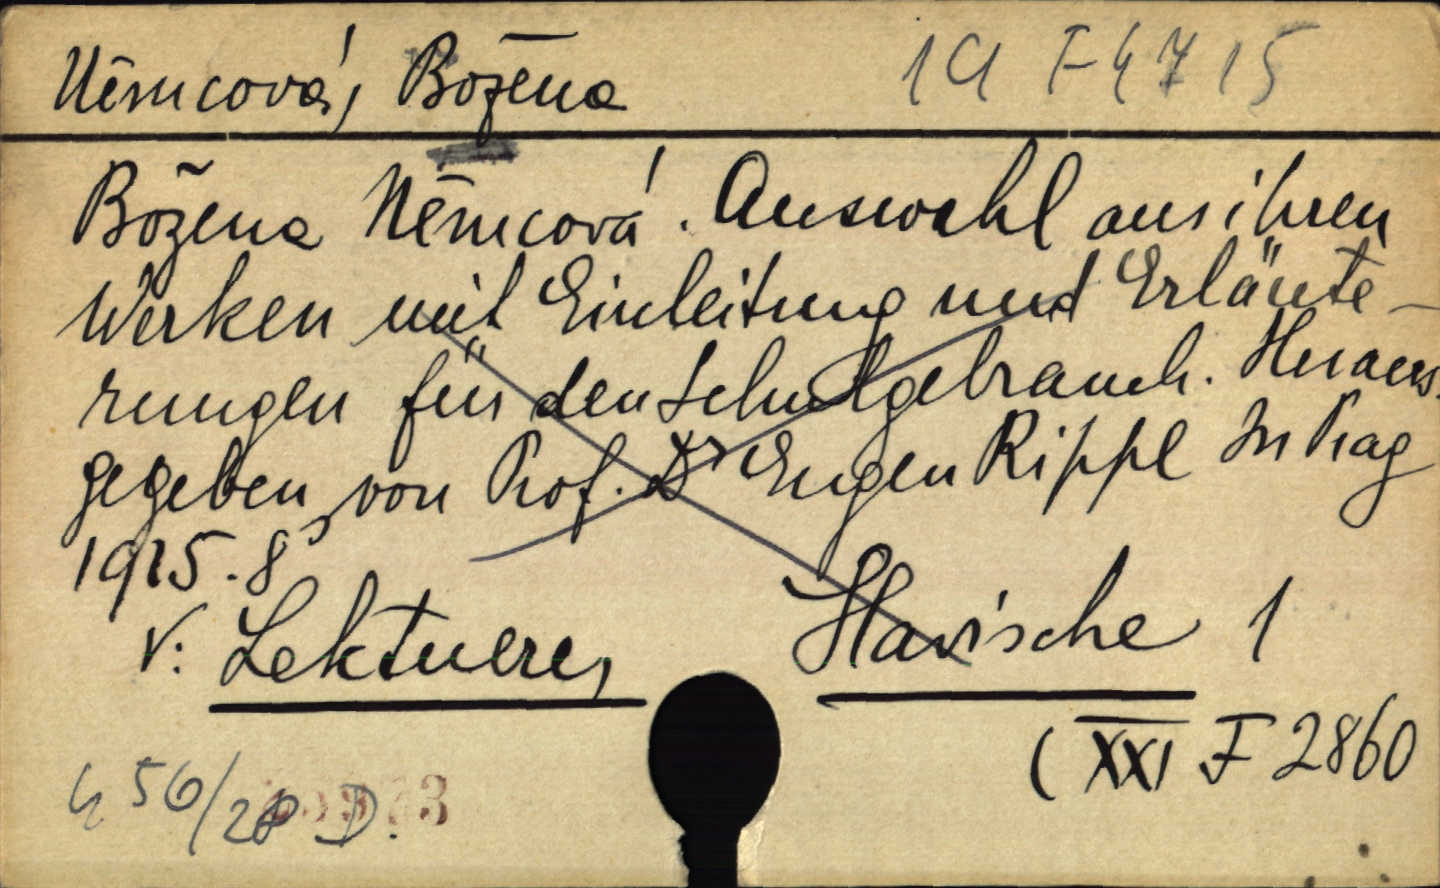 Němcová, Božena 1A F 4715
Božena Němcová. Auswahl aus ihren
Werken mit Einleitung und Erläute-
rungen für den Schulgebrauch. Heraus-
gegeben von Prof. Dr Eugen Rippl In Prag
1925. 8°
V: Lektuere, Slavische 1
(XXI F 2860
56/28 D.